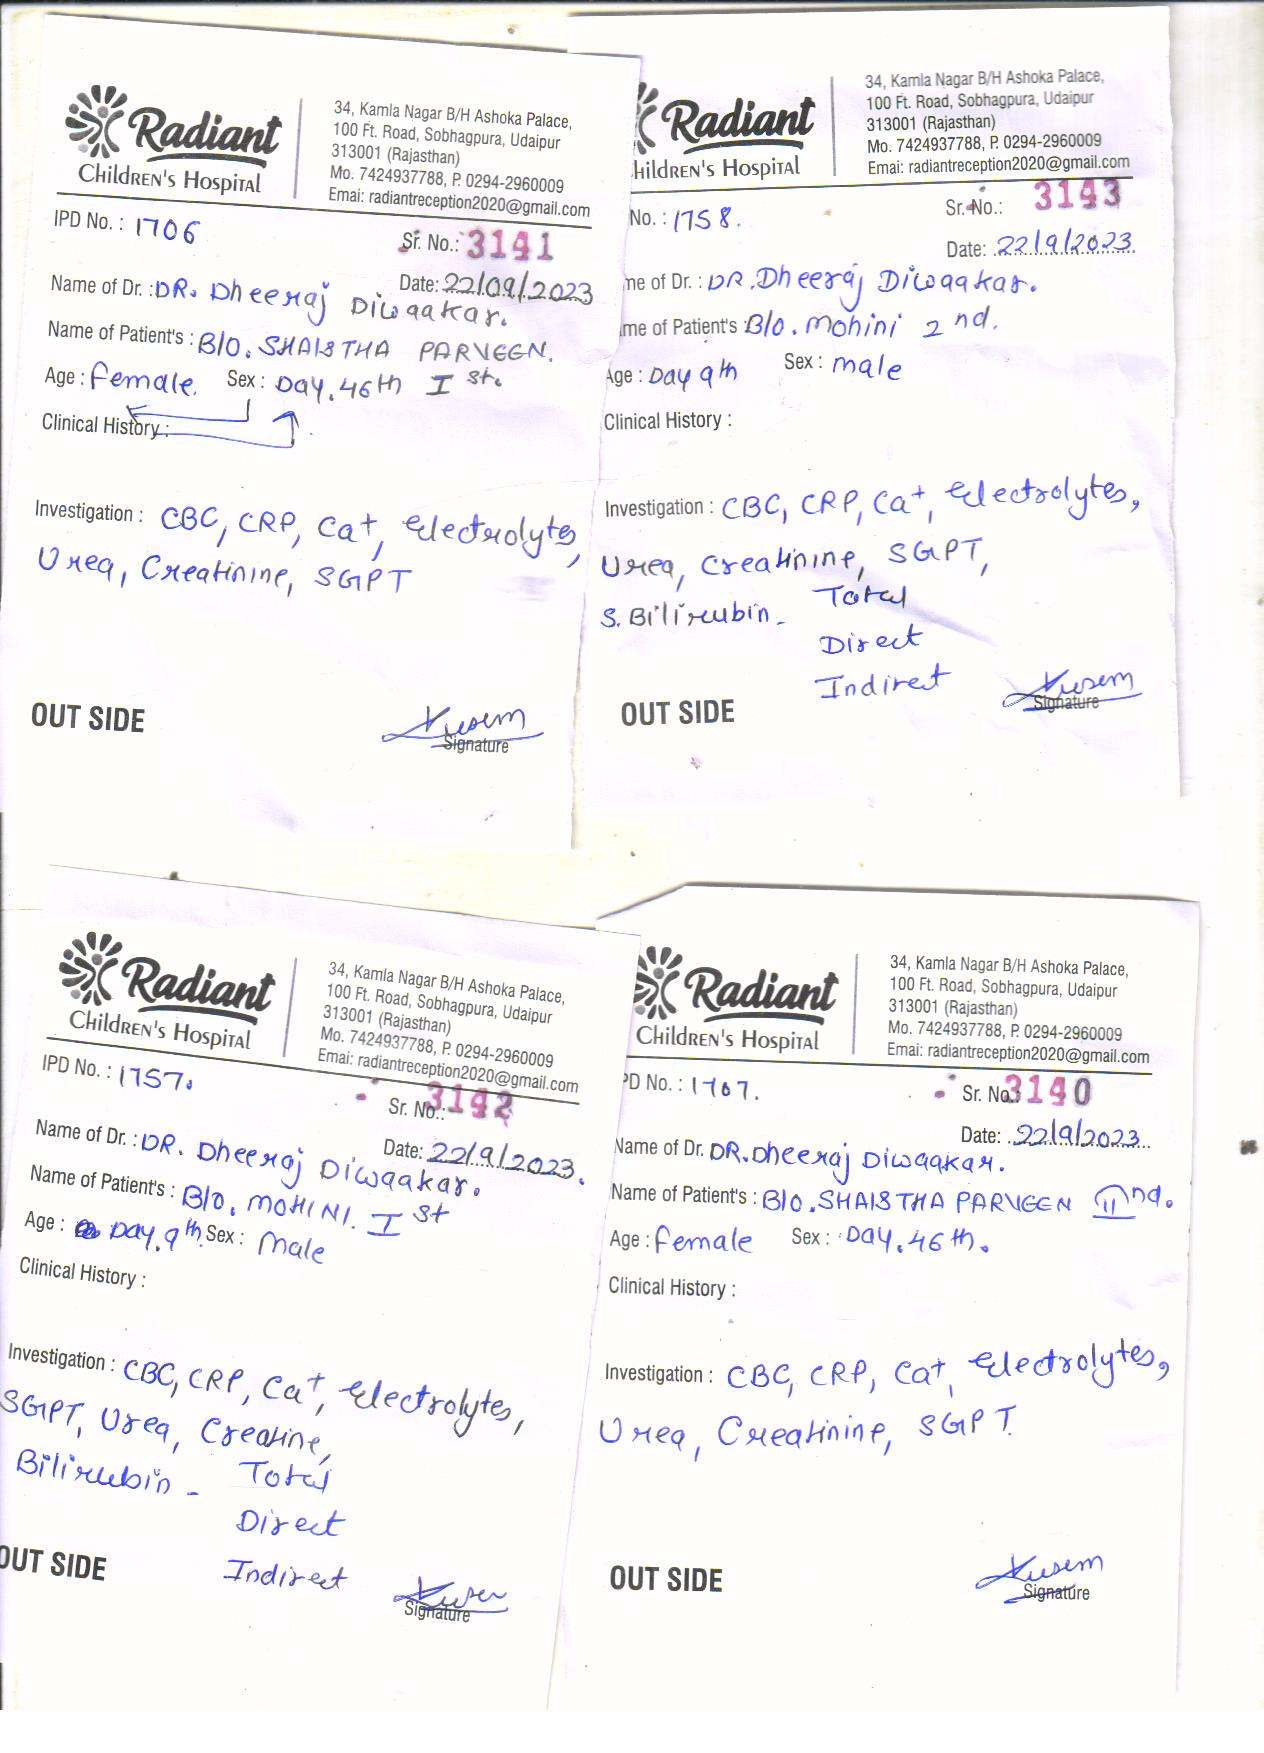 Radiant
Children's Hospital
34, Kamla Nagar B/H Ashoka Palace,
100 Ft. Road, Sobhagpura, Udaipur
313001 (Rajasthan)
Mo. 7424937788, P. 0294-2960009
Emai: radiantreception2020@gmail.com
IPD No. : 1706
Sr. No.: 3141
Date: 22/09/2023
Name of Dr. : DR. Dheeraj Diwaakar.
Name of Patient's : B/O. SHAISTHA PARVEEN.
Age : Female. Sex : Day. 46th I st.
Clinical History :
Investigation : CBC, CRP, Ca+, Electrolytes,
Urea, Creatinine, SGPT
OUT SIDE
Signature
Radiant
hildren's Hospital
34, Kamla Nagar B/H Ashoka Palace,
100 Ft. Road, Sobhagpura, Udaipur
313001 (Rajasthan)
Mo. 7424937788, P. 0294-2960009
Emai: radiantreception2020@gmail.com
No. : 1758.
Sr. No.: 3143
Date: 22/9/2023.
me of Dr. : DR. Dheeraj Diwaakar.
me of Patient's : B/O. Mohini 2nd.
Age : Day 9th Sex : male
Clinical History :
Investigation : CBC, CRP, Ca+, Electrolytes,
Urea, Creatinine, SGPT,
S. Bilirubin - Total
Direct
Indirect
OUT SIDE
Signature
Radiant
Children's Hospital
34, Kamla Nagar B/H Ashoka Palace,
100 Ft. Road, Sobhagpura, Udaipur
313001 (Rajasthan)
Mo. 7424937788, P. 0294-2960009
Emai: radiantreception2020@gmail.com
IPD No. : 1757.
Sr. No.: 3142
Date: 22/9/2023.
Name of Dr. : DR. Dheeraj Diwaakar.
Name of Patient's : B/O. MOHINI. I st
Age : Day. 9th. Sex : Male
Clinical History :
Investigation : CBC, CRP, Ca+, Electrolytes,
SGPT, Urea, Creatine,
Bilirubin - Total
Direct
Indirect
OUT SIDE
Signature
Radiant
Children's Hospital
34, Kamla Nagar B/H Ashoka Palace,
100 Ft. Road, Sobhagpura, Udaipur
313001 (Rajasthan)
Mo. 7424937788, P. 0294-2960009
Emai: radiantreception2020@gmail.com
PD No. : 1707.
Sr. No.: 3140
Date: 22/9/2023
Name of Dr. DR. Dheeraj Diwaakar.
Name of Patient's : B/O. SHAISTHA PARVEEN II nd.
Age : Female Sex : Day. 46th.
Clinical History :
Investigation : CBC, CRP, Ca+, Electrolytes,
Urea, Creatinine, SGPT.
OUT SIDE
Signature